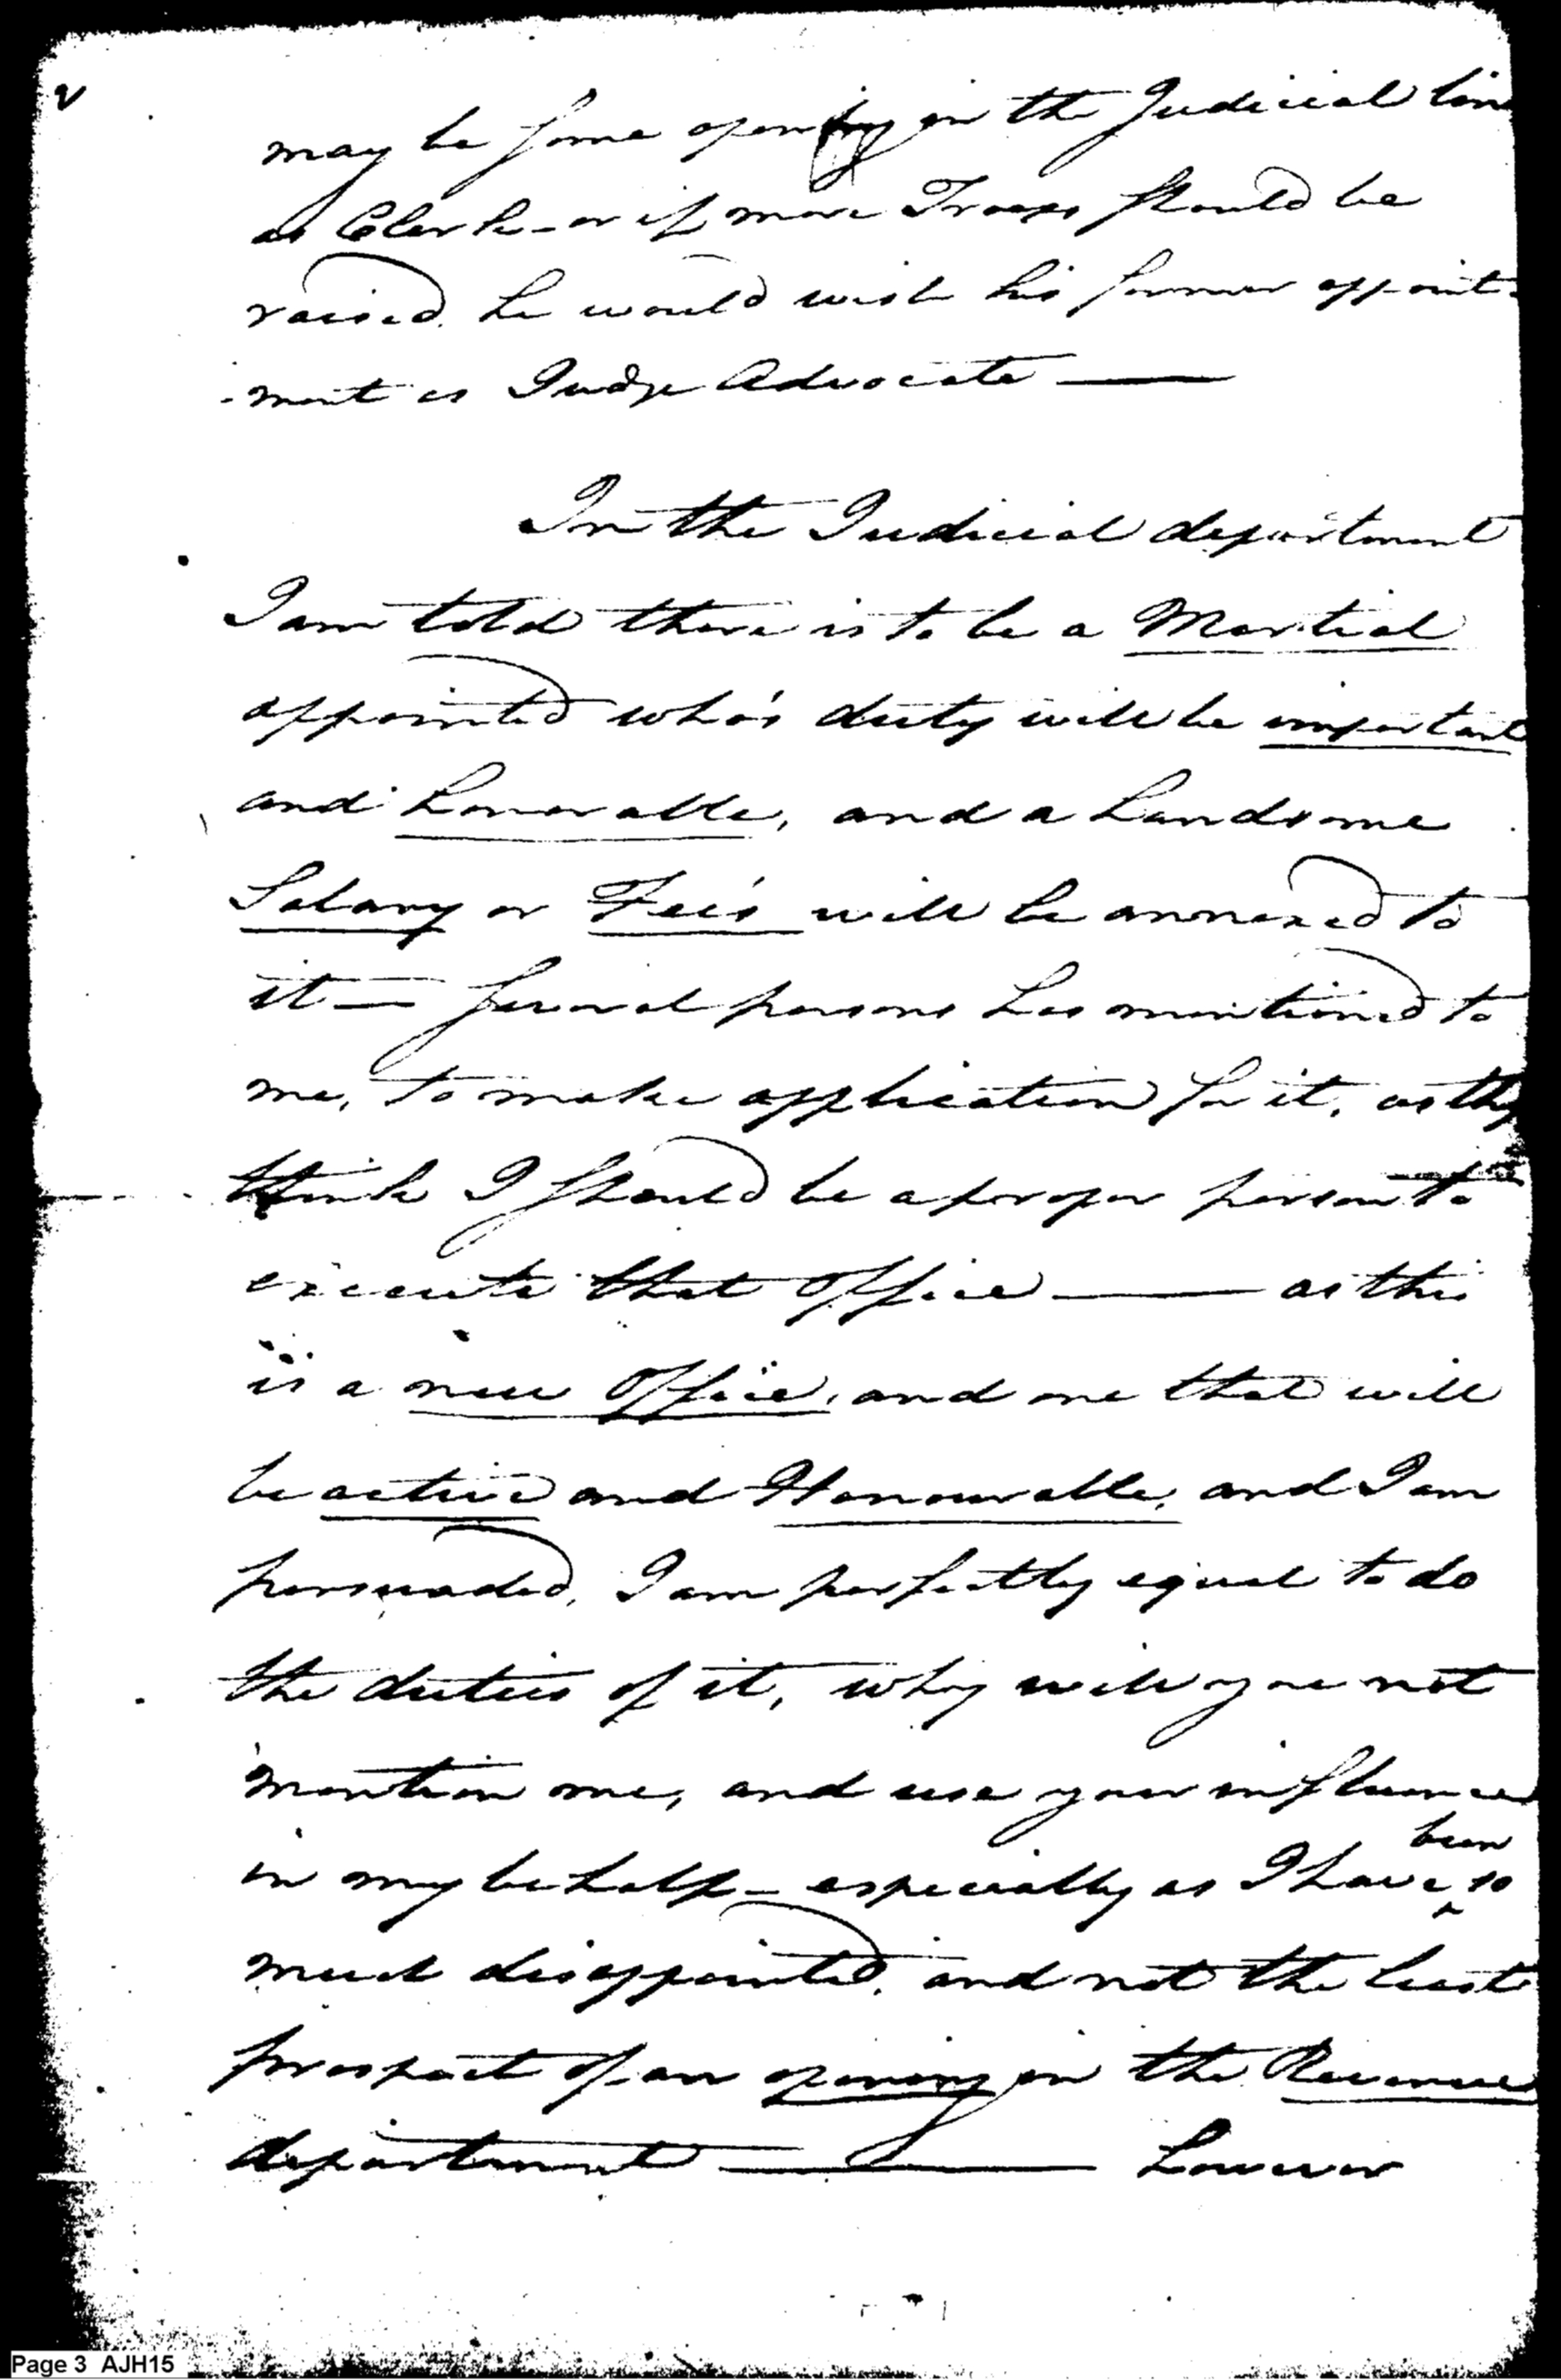 may be some opening in the Judicial line
as Clerk - or if more Troops should be
raised, he would wish his former appoint-
-ment as Judge Advocate —
In the Judicial department
I am told there is to be a Martial
appointed who's duty will be important
and honorable, and a handsome
Salary or Fee's will be annexed to
it — several persons has mentioned to
me, to make application for it, as they
think I should be a proper person to
execute that office — as this
is a new office, and one that will
be active and Honourable, and I am
persuaded, I am perfectly equal to do
the duties of it, why will you not
mention me, and use your influence
in my behalf - especially as I have been so
much disappointed, and not the least
prospect of an opening in the Revenue
department — however
Page 3 AJH15